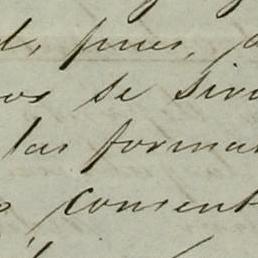 d, pues,
os se sir
las forma
consent